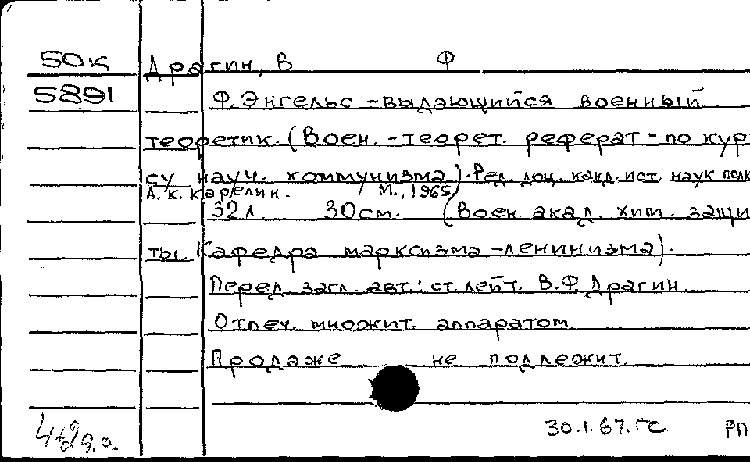 50к Драгин, В Ф
5891 Ф. Энгельс - выдающийся военный
теоретик. (Воен.-теорет. реферат - по кур
су науч. коммунизма). Ред. доц. канд. ист. наук полк
А. К. Карелин. М., 1965
32 л. 30 см. (Воен. акад. хим. защи
ты. Кафедра марксизма-ленинизма).
Перед загл. авт.: ст. лейт. В. Ф. Драгин
Отпеч. множит. аппаратом.
Продаже не подлежит.
30.1.67. РП